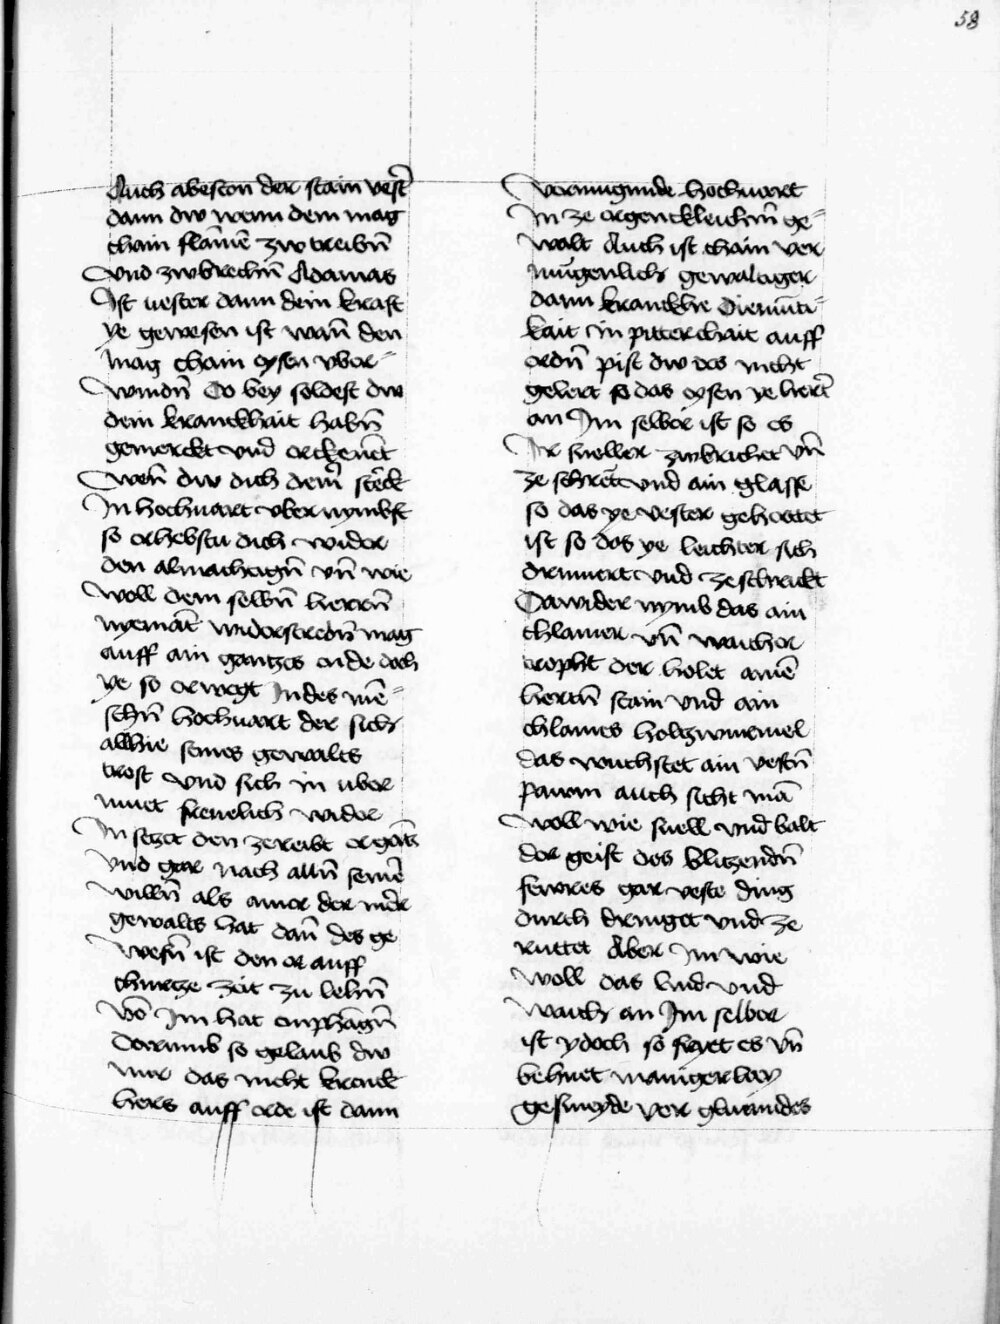 58
Auch abeston der stain vest̄
dann dw wann dem mag
chain flām̄e zw treibn̄
vnd zwbrechn̄ Adamas
Ist uester dann dein kraft
ye gewesen ist wan̄ den
mag chain eysen vber-
windn̄ Do bey soldest dw
dein kranckhait habn̄
gemerckt vnd erckenn̄t
Wen̄ dw dich dem̄ sterck
In hochuart vber nymbst
so erhebstu dich wider
den almachtign̄ vn̄ wie
woll dem selbn̄ herrn̄
nyemāt widerstredn̄ mag
auff ain gantzes ende doch
ye so erwegt In des mē-
schn̄ hochuart der sich
allhie seines gewalts
trost vnd sich in vber
muet freuelich wider
In setzt den zereibt er gātz
vnd gar nach alln̄ seinē
willn̄ als ainer der mer
gewalts hat dan̄ des ge
wesn̄ ist den er auff
churtze zeit zu lehn̄
vō Im hat enphagn̄
Darumb so gelaub dw
mir das nicht kranck
hers auff erde ist dann
vermugunde hochuart
In ze ergencklichn̄ ge-
walt Auch ist chain ver
mūgenlich gewaltiger
dann kranckhe Diemuti-
kait in pitterchait auff
erdn̄ pist dw des nicht
gelert so das eysen ye hert̄
an Im selber ist so es
Ir sneller zwbrichet vn̄
ze schret vnd ain glasse
so das ye vester gehertet
ist so das ye leichter sich
drummert vnd zeschrickt
Dawider nymb das ain
chlainer vn̄ waicher
tropht der holet ainē
hertn̄ stain vnd ain
chlaines holtzwurmel
das wuchstet ain vestn̄
pawm auch sicht mā
woll wie snell vnd balt
der geist des blitzendn̄
fewres gar veste ding
durch dringet vnd ze
ruttet Aber Im wie
woll das lind vnd
waich an Im selber
ist ydoch so freyet es vn̄
behuet maniger lay
gesmeyde vor gluendes